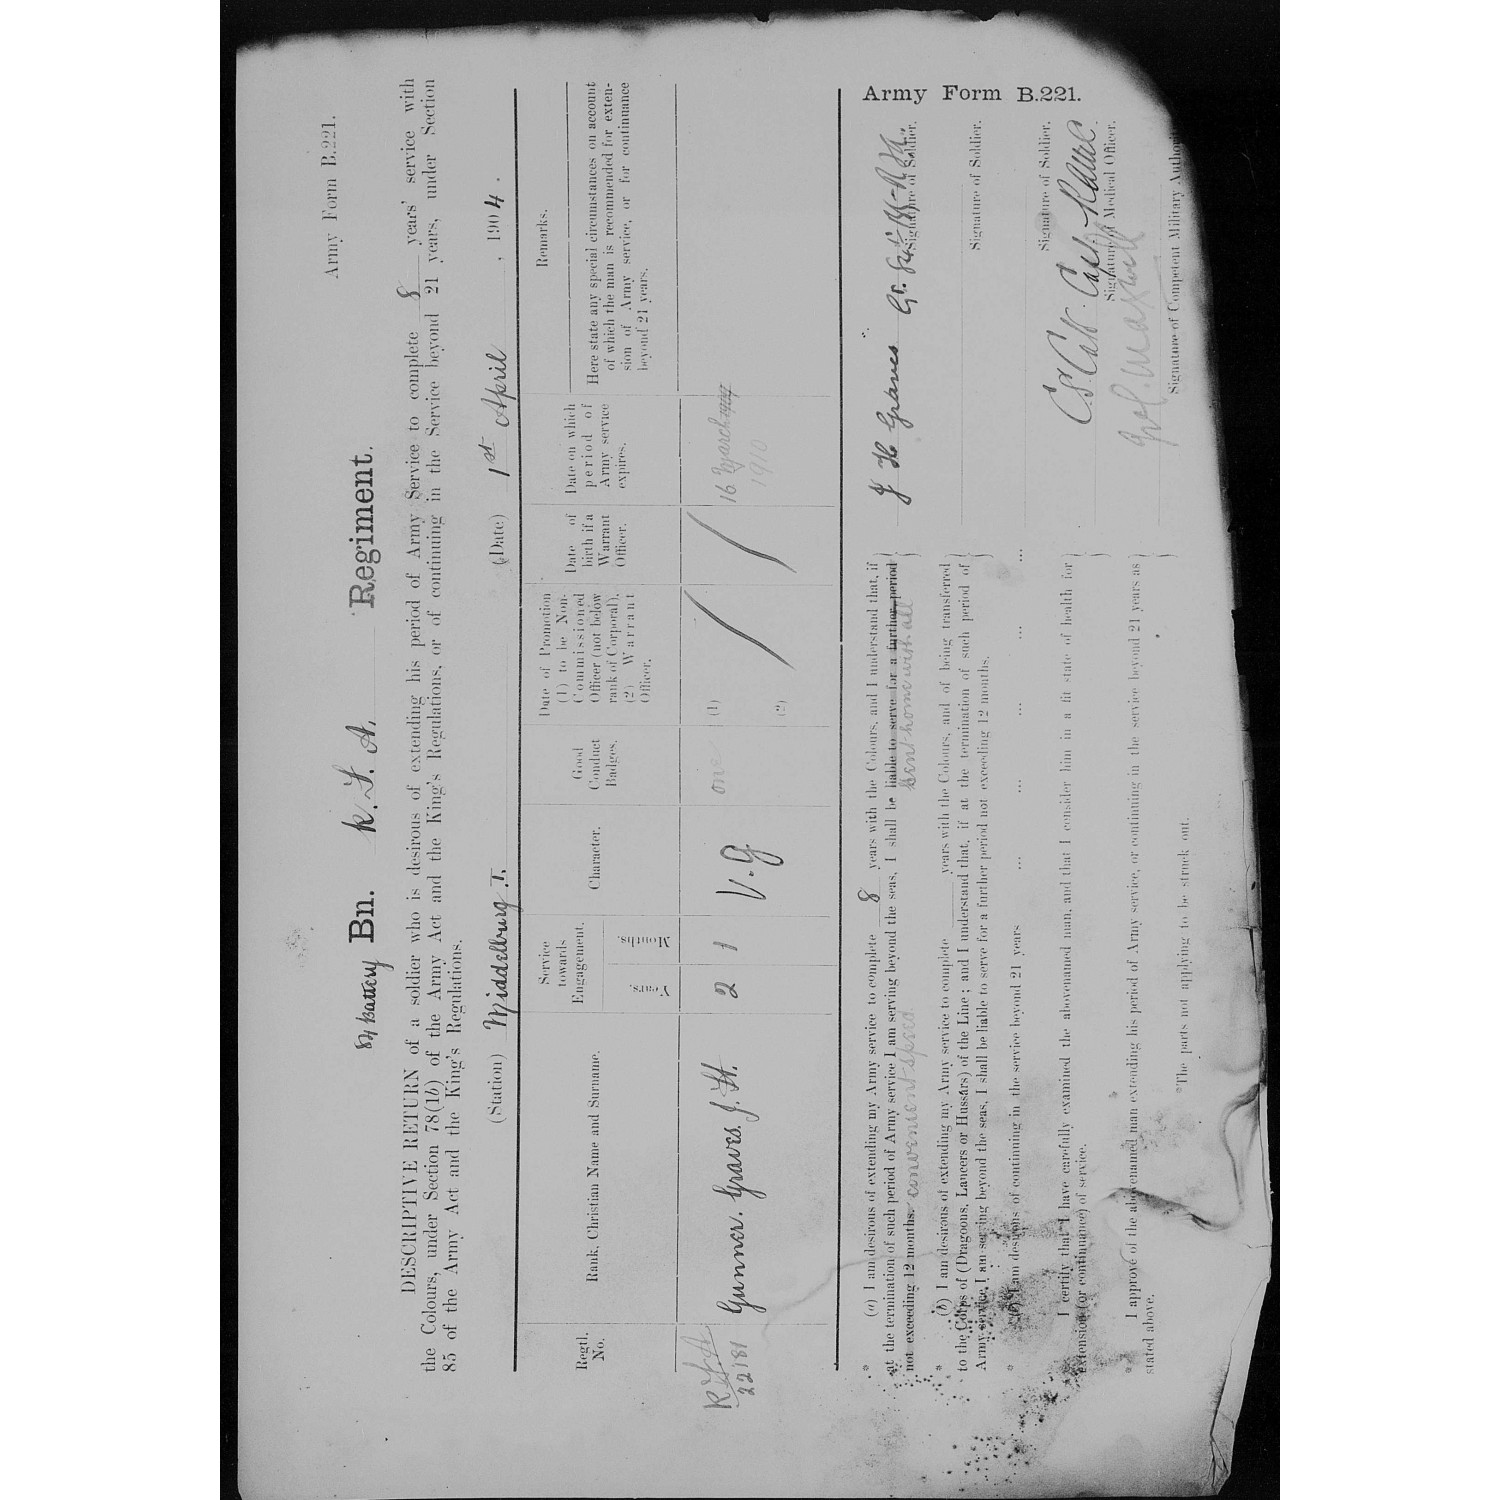 Army Form B.221.
84 Battery Bn. R. F. A. Regiment.
DESCRIPTIVE RETURN of a soldier who is desirous of extending his period of Army Service to complete 8 years' service with
the Colours, under Section 78(1b) of the Army Act and the King's Regulations, or of continuing in the Service beyond 21 years, under Section
85 of the Army Act and the King's Regulations.
(Station) Middelburg T. (Date) 1st April, 1904.
Regtl. No.
Rank, Christian Name and Surname.
Service towards Engagement.
Years.
Months.
Character.
Good Conduct Badges.
Date of Promotion (1) to be Non-Commissioned Officer (not below rank of Corporal). (2) Warrant Officer.
Date of birth if a Warrant Officer.
Date on which period of Army service expires.
Remarks.
Here state any special circumstances on account
of which the man is recommended for exten-
sion of Army service, or for continuance
beyond 21 years.
R.F.A
22181
Gunner. Graves. J. H.
2
1
V. G
one
(1)
(2)
16 March
1910
Army Form B.221.
* (a) I am desirous of extending my Army service to complete 8 years with the Colours, and I understand that, if
at the termination of such period of Army service I am serving beyond the seas, I shall be liable to serve for a further period
not exceeding 12 months. sent home with all
convenient speed.
J H Graves Gr.
Signature of Soldier.
* (b) I am desirous of extending my Army service to complete years with the Colours, and of being transferred
to the Corps of (Dragoons, Lancers or Hussars) of the Line; and I understand that, if at the termination of such period of
Army service I am serving beyond the seas, I shall be liable to serve for a further period not exceeding 12 months.
Signature of Soldier.
* (c) I am desirous of continuing in the service beyond 21 years ... ... ... ... ...
Signature of Soldier.
I certify that I have carefully examined the abovenamed man, and that I consider him in a fit state of health for
extension (or continuance) of service.
Capt RAMC
Signature of Medical Officer.
* I approve of the abovenamed man extending his period of Army service, or continuing in the service beyond 21 years as
stated above.
Maxwell
Signature of Competent Military Authority
*The parts not applying to be struck out.